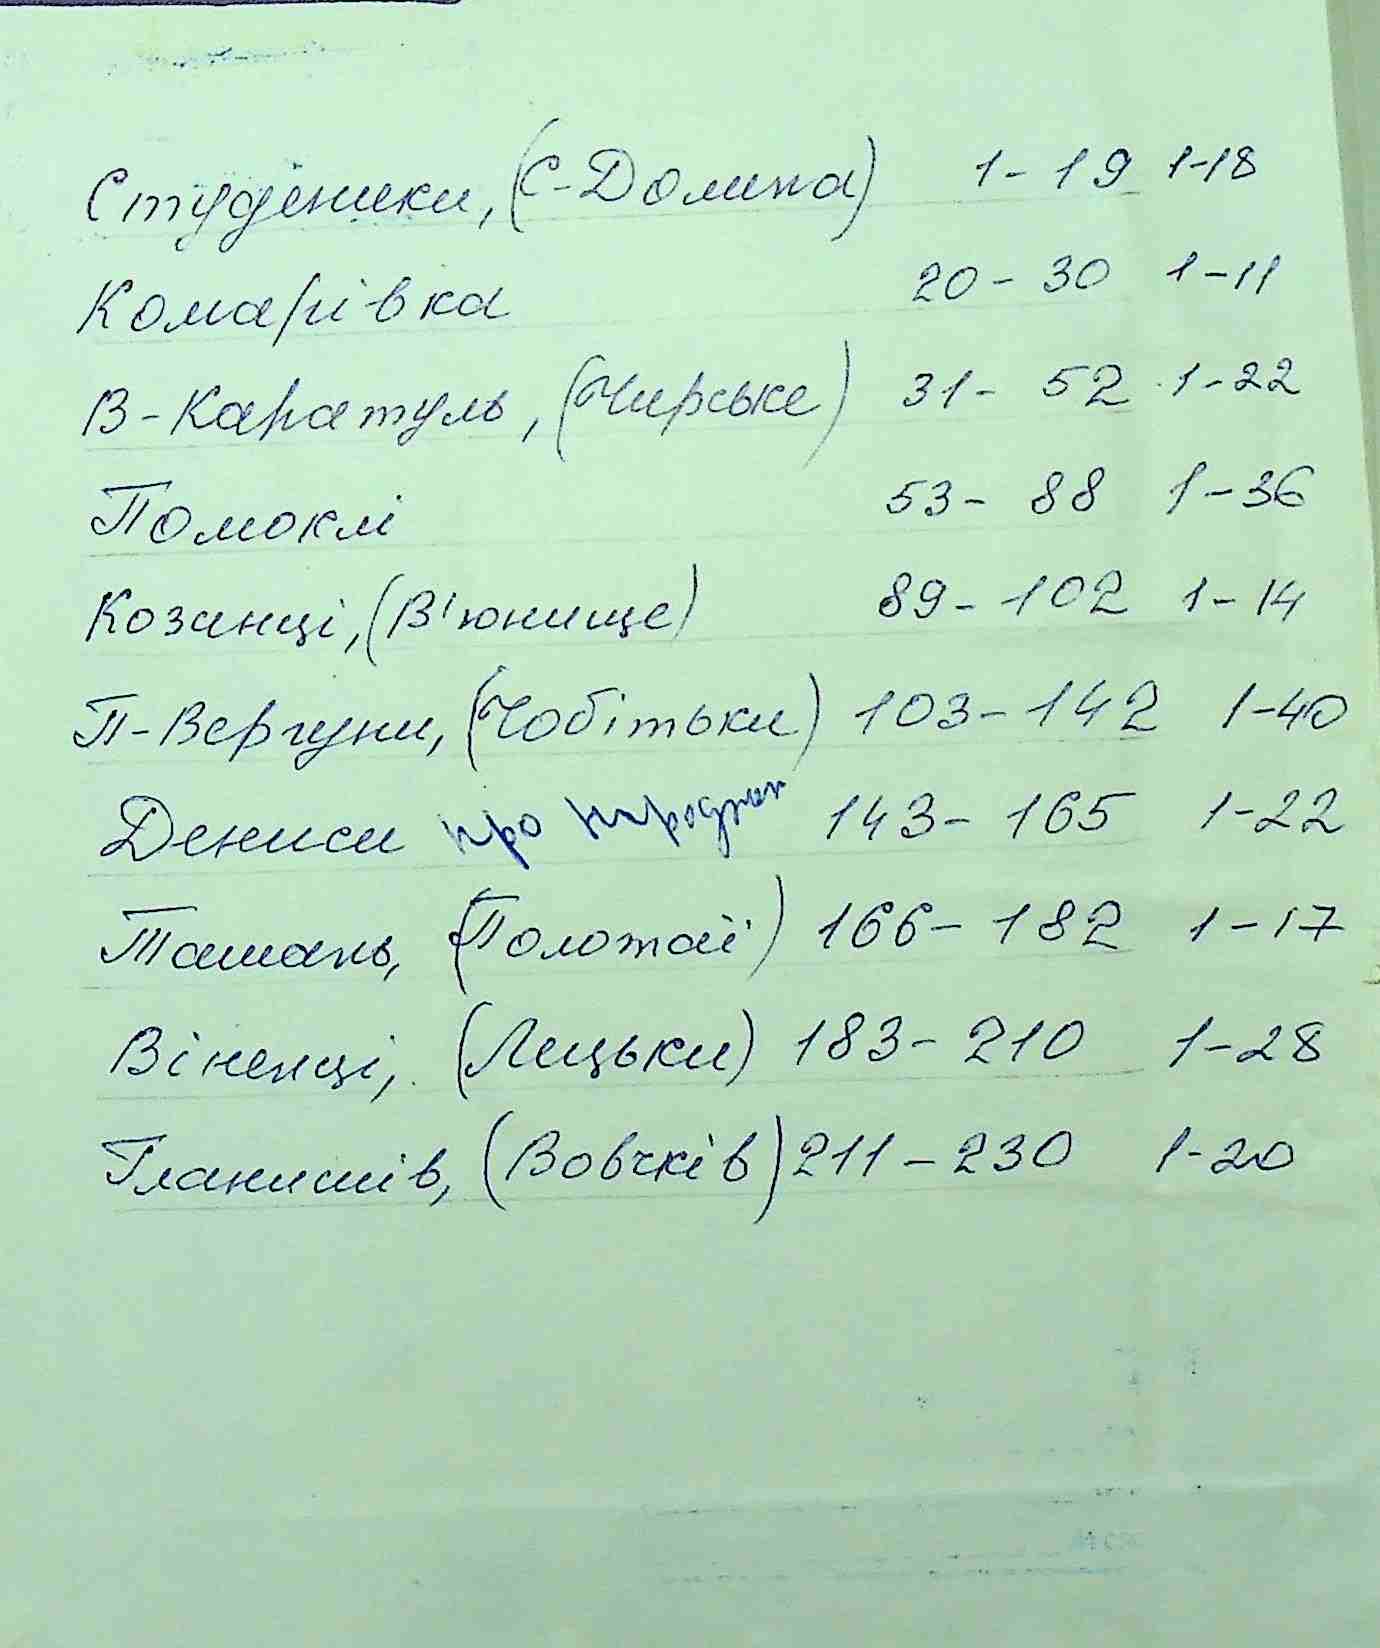 Студеники, (С-Долина) 1-19 1-18
Комарівка 20-30 1-11
В-Каратуль, (Чирське) 31-52 1-22
Помоклі 53-88 1-36
Козинці, (В'юнище) 89-102 1-14
П-Вергуни, (Чобітьки) 103-142 1-40
Дениси про народжен 143-165 1-22
Ташань, (Положаї) 166-182 1-17
Віненці, (Лецьки) 183-210 1-28
Гланишів, (Вовчків) 211-230 1-20